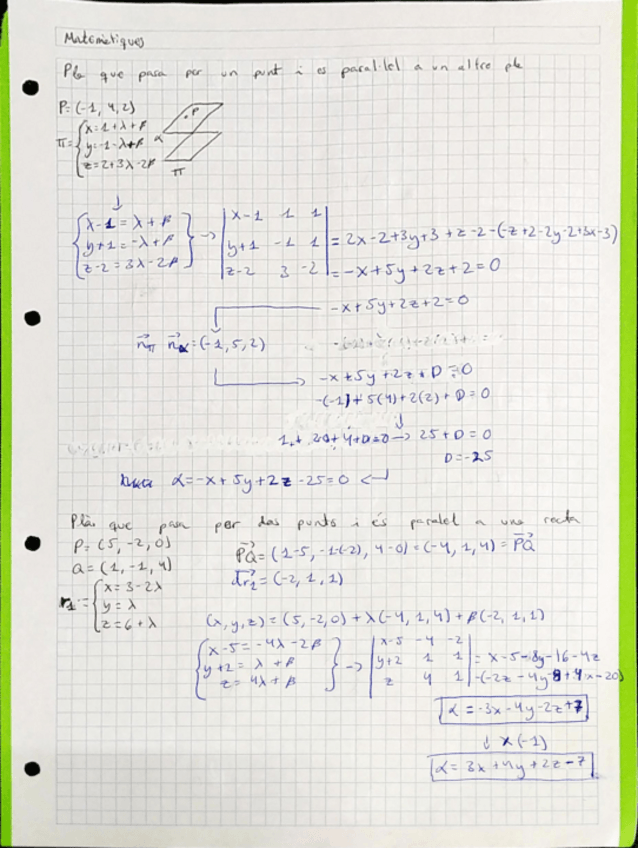 Matemàtiques
Pla que pasa per un punt i es paral·lel a un altre pla
P=(-1, 4, 2)
π={x=1+λ+β
y=-1-λ+β
z=2+3λ-2β
P
α
π
↓
{x-1=λ+β
y+1=-λ+β
z-2=3λ-2β} → |x-1 1 1
y+1 -1 1
z-2 3 -2| = 2x-2+3y+3+z-2-(-z+2-2y-2+3x-3)
= -x+5y+2z+2=0
-x+5y+2z+2=0
n⃗π n⃗α=(-1,5,2)
-x+5y+2z+D=0
-(-1)+5(4)+2(2)+D=0
↓
1+20+4+D=0 → 25+D=0
D=-25
α=-x+5y+2z-25=0 ←
Pla que pasa per dos punts i és paralel a una recta
P=(5,-2,0)
Q=(1,-1,4)
r1={x=3-2λ
y=λ
z=6+λ
P⃗Q=(1-5,-1-(-2), 4-0)=(-4,1,4)=P⃗Q
d⃗r1=(-2,1,1)
(x,y,z)=(5,-2,0)+λ(-4,1,4)+β(-2,1,1)
{x-5=-4λ-2β
y+2=λ+β
z=4λ+β} → |x-5 -4 -2
y+2 1 1
z 4 1| = x-5-8y-16-4z
-(-2z-4y-8+4x-20)
α=-3x-4y-2z+7
↓ x(-1)
α=3x+4y+2z-7